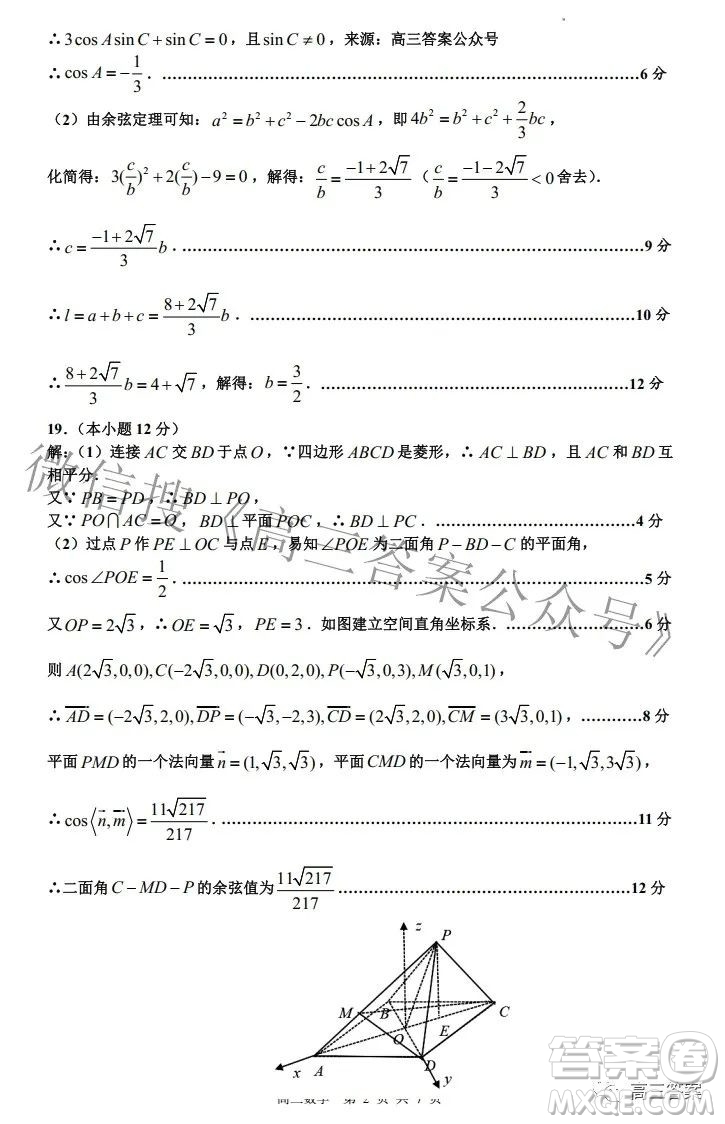 ∴3cos A sin C + sin C = 0，且 sin C ≠ 0，来源：高三答案公众号
∴cos A = -1/3．……………………6 分
（2）由余弦定理可知：a² = b² + c² - 2bc cos A，即 4b² = b² + c² + 2/3 bc，
化简得：3(c/b)² + 2(c/b) - 9 = 0，解得：c/b = (-1+2√7)/3（c/b = (-1-2√7)/3 < 0 舍去）．
∴c = (-1+2√7)/3 b．……………………9 分
∴l = a + b + c = (8+2√7)/3 b．……………………10 分
∴(8+2√7)/3 b = 4 + √7，解得：b = 3/2．……………………12 分
19．（本小题 12 分）
解：（1）连接 AC 交 BD 于点 O，∵四边形 ABCD 是菱形，∴AC ⊥ BD，且 AC 和 BD 互
相平分．
又∵ PB = PD，∴BD ⊥ PO，
又∵ PO∩AC = O，BD ⊥ 平面 POC，∴BD ⊥ PC．……………………4 分
（2）过点 P 作 PE ⊥ OC 与点 E，易知∠POE 为二面角 P-BD-C 的平面角，
∴cos∠POE = 1/2．……………………5 分
又 OP = 2√3，∴OE = √3，PE = 3．如图建立空间直角坐标系．……………………6 分
则 A(2√3,0,0), C(-2√3,0,0), D(0,2,0), P(-√3,0,3), M(√3,0,1)，
∴AD = (-2√3,2,0), DP = (-√3,-2,3), CD = (2√3,2,0), CM = (3√3,0,1)，…………8 分
平面 PMD 的一个法向量 n = (1,√3,√3)，平面 CMD 的一个法向量为 m = (-1,√3,3√3)，
∴cos⟨n,m⟩ = 11√217/217．……………………11 分
∴二面角 C-MD-P 的余弦值为 11√217/217……………………12 分
z
P
M
B
C
E
O
x
A
D
y
高三数学 第 2 页 共 7 页
微信搜《高三答案公众号》
答案圈
高三答案